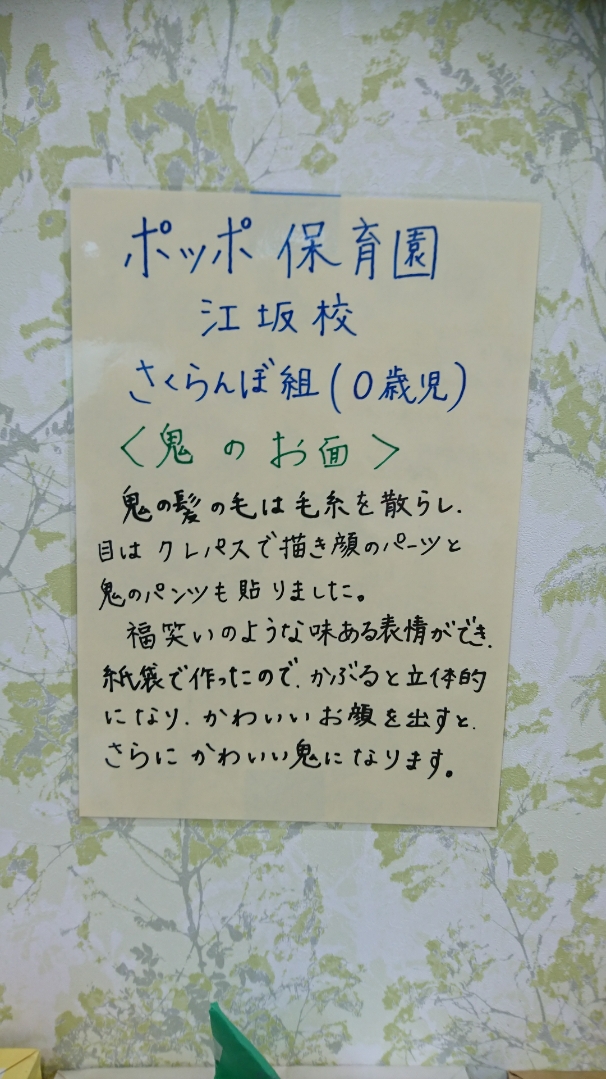 ポッポ保育園
江坂校
さくらんぼ組(0歳児)
<鬼のお面>
鬼の髪の毛は毛糸を散らし、
目はクレパスで描き顔のパーツと
鬼のパンツも貼りました。
福笑いのような味ある表情ができ、
紙袋で作ったので、かぶると立体的
になり、かわいいお顔を出すと、
さらにかわいい鬼になります。